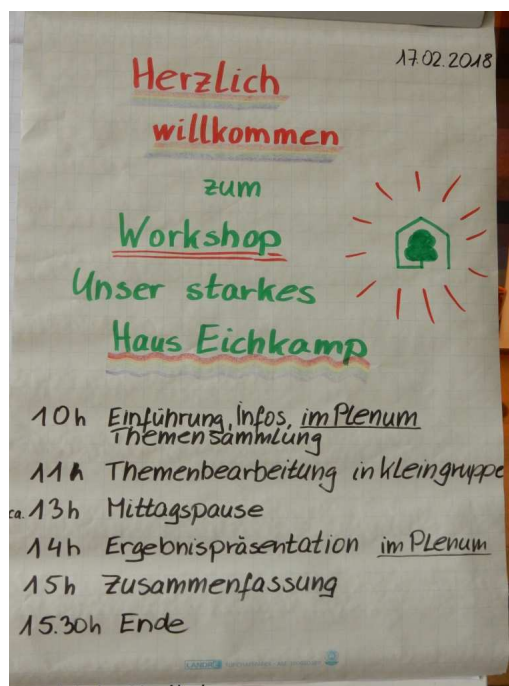 17.02.2018
Herzlich
willkommen
zum
Workshop
Unser starkes
Haus Eichkamp
10h Einführung, Infos, im Plenum
Themensammlung
11h Themenbearbeitung in Kleingruppe
ca. 13h Mittagspause
14h Ergebnispräsentation im Plenum
15h Zusammenfassung
15.30h Ende
LANDRÉ